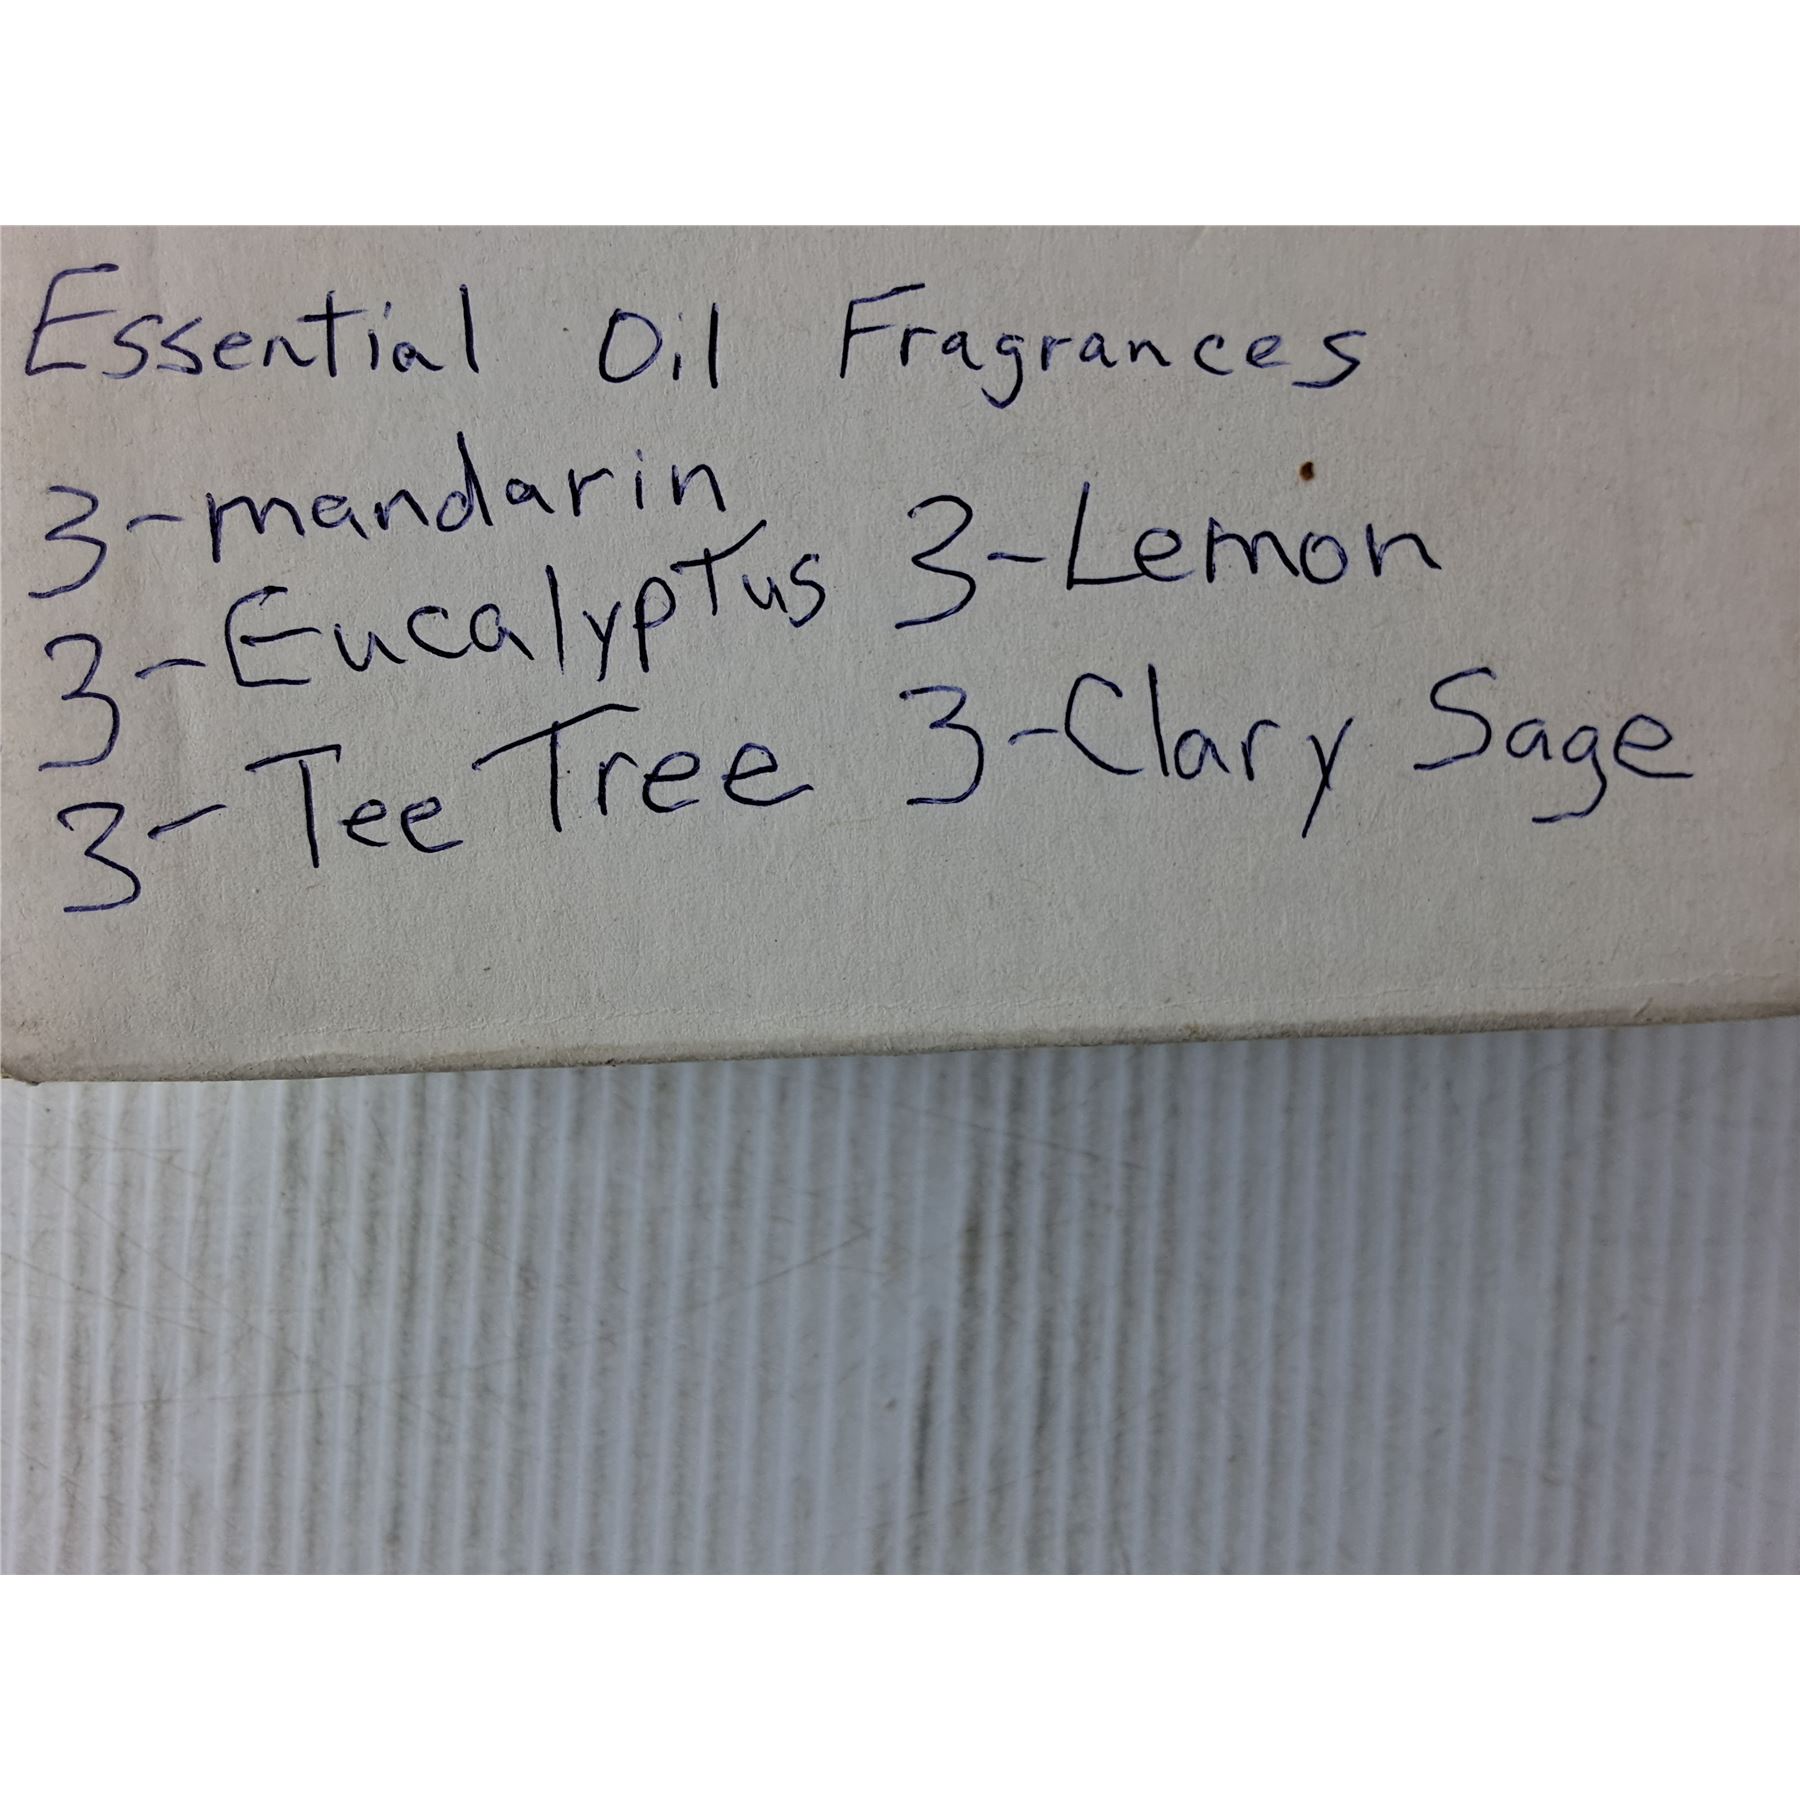 Essential Oil Fragrances
3-mandarin
3-Eucalyptus
3-Tee Tree
3-Lemon
3-Clary Sage